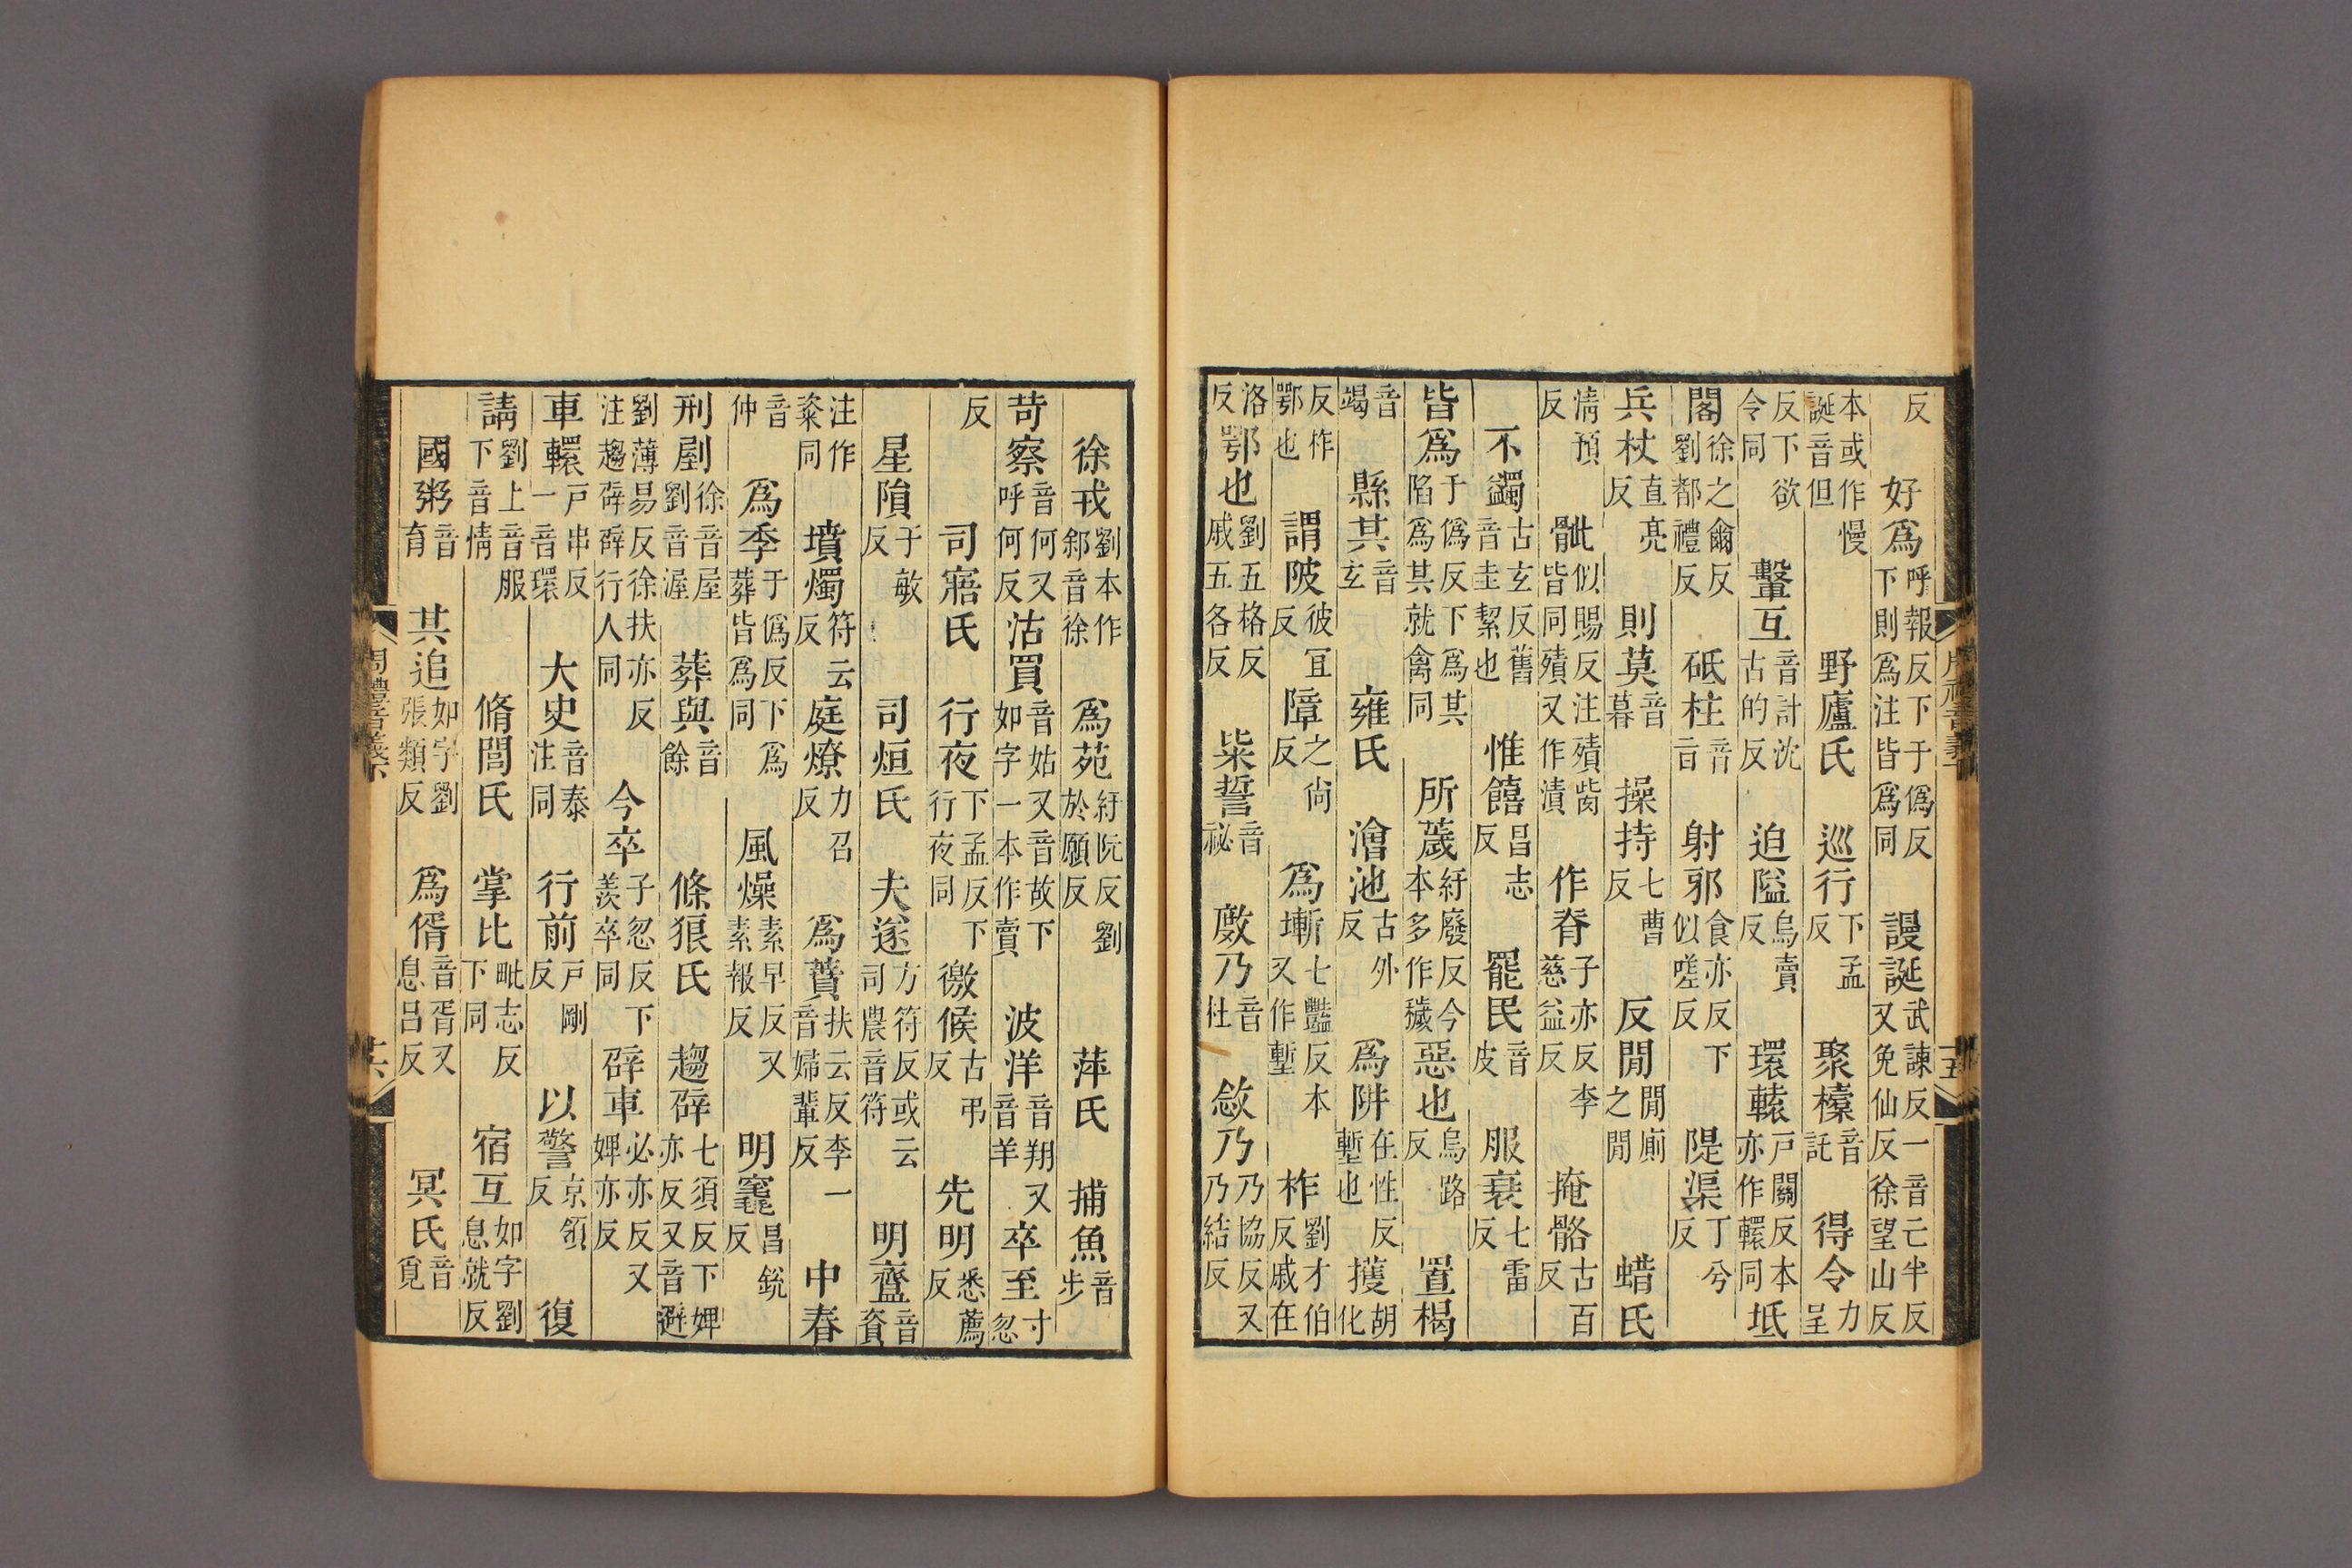 反　好爲呼報反下于偽反下則爲注皆爲同　謾誕武諫反一音亡半反又免仙反徐望山反
本或作慢誕音但　野廬氏　巡行下孟反　聚㯓音託　得令力呈
反下欲令同　轚互音計沈古的反　迫隘烏賣反　環轅戶關反本亦作轘同　坻
閣徐之爾反劉都禮反　砥柱音　射邪食亦反下似嗟反　隄渠丁兮反
兵杖直亮反　則莫音暮　操持七曹反　反閒閒廁之閒　蜡氏
清預反　骴似賜反注殨骴皆同殨又作漬　作脊子亦反李慈益反　掩骼古百反
不蠲古玄反舊音圭絜也　惟饎昌志反　罷民音皮　服衰七雷反
皆爲于偽反下爲其陷爲其就禽同　所薉紆廢反今本多作穢　惡也烏路反　置楬
音竭　縣其音玄　雍氏　澮池古外反　爲阱在性反塹也　擭胡化
反柞鄂也　謂陂彼冝反　障之尙反　爲塹七豔反本又作塹　柞劉才伯反戚在
洛反　鄂也劉五格反戚五各反　柴誓音祕　敜乃音杜　敛乃乃協反又乃結反
徐戎劉本作䣄音徐　爲苑紆阮反劉於願反　萍氏　捕魚音步
苛察音何又呼何反　沽買音姑又音故下如字一本作賣　波洋音翔又音羊　卒至寸忽
反　司寤氏　行夜下孟反下行夜同　徼候古弔反　先明悉薦反
星隕于敏反　司烜氏　夫遂方符反或云司農音符　明齍音資
注作粢同　墳燭符云反　庭燎力召反　爲蕡扶云反李一音婦輩反　中春
音仲　爲季于偽反下爲葬皆爲同　風燥素早反又素報反　明竁昌銳反
刑剭徐音屋劉音渥　葬與音餘　條狼氏　趨辟七須反下婢亦反又音避
劉薄易反徐扶亦反注趨辟辟行人同　今卒子忽反下羨卒同　辟車必亦反又婢亦反
車轘戶串反一音環　大史音泰注同　行前戶剛反　以警京領反　復
請劉上音服下音情　脩閭氏　掌比毗志反下同　宿互如字劉息就反
國粥音育　其追如字劉張類反　爲偦音胥又息呂反　冥氏音覓
周禮音義下